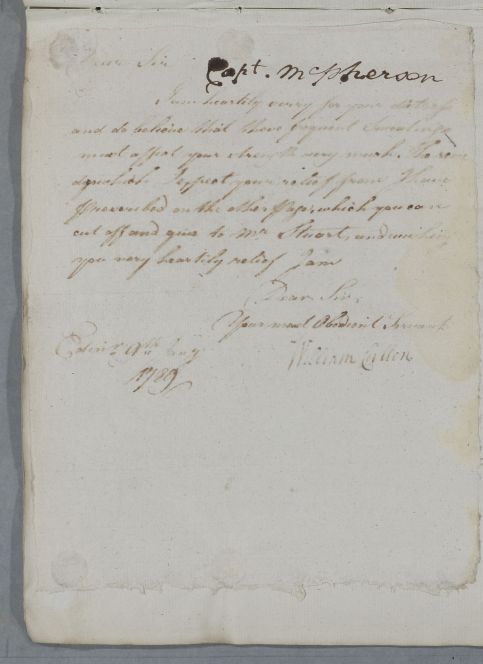 Dear Sir
Capt. McPherson
I am heartily sorry for your distress
and do believe that these frequent Sweatings
must affect your strength very much. The
I expect your relief from I have
prescribed on the other Page, which you can
cut off and give to Mr Stuart, and wishing
you very heartily relief I am
Dear Sir,
Your most Obedient Servant
William Cullen
Edinr 9th Aug
1789